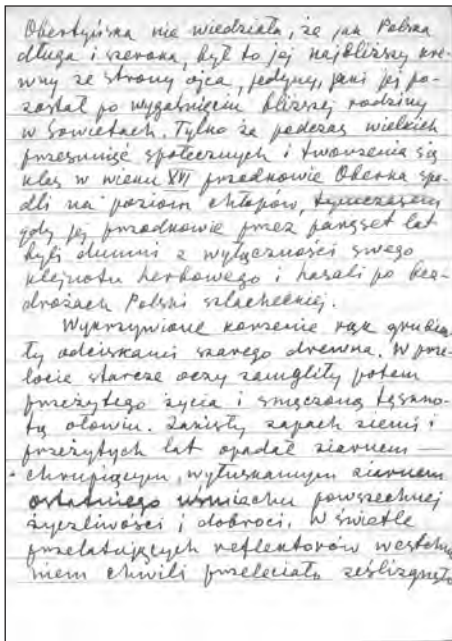 Obertyńska nie wiedziała, że jak Polska
długa i szeroka, był to jej najbliższy kre-
wny ze strony ojca, jedyny, jaki jej po-
został po wygaśnięciu bliższej rodziny
w Sowietach. Tylko że podczas wielkich
przesunięć społecznych i tworzenia się
klas w wieku XVI przodkowie Oberka spa-
dli na poziom chłopów, tymczasem
gdy jej przodkowie przez pięćset lat
byli dumni z wyłączności swego
klejnotu herbowego i hasali po bez-
drożach Polski szlacheckiej.
Wykrzywione korzenie rąk grubia-
ły odciskami szarego drewna. W prze-
locie starcze oczy zamgliły potem
przeżytego życia i smęczoną tęskno-
tą ołowiu. Zawisły zapach ziemi i
przeżytych lat opadał ziarnem —
chrupiącym, wyłuskanym ziarnem
ostatniego uśmiechu powszechnej
życzliwości i dobroci. W świetle
przelatujących reflektorów westchnie-
niem chwili przeleciała ześlizgnęła